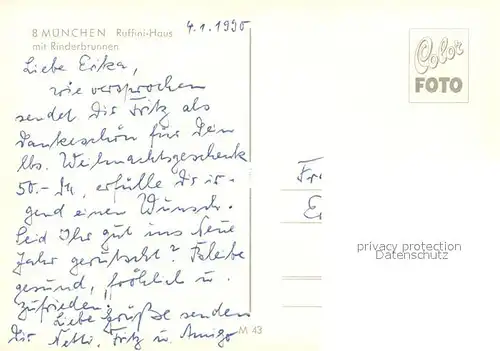 8 MÜNCHEN Ruffini-Haus
mit Rinderbrunnen
4.1.1990
Liebe Erika,
wie versprochen
sendet Dir Fritz als
Dankeschön für Dein
lbs. Weihnachtsgeschenk
50.- DM, erfülle Dir ir-
gend einen Wunsch.
Seid Ihr gut ins Neue
Jahr gerutscht? Bleibe
gesund, fröhlich u.
zufrieden!
Liebe Grüße senden
Dir Netti, Fritz u. Amigo
M 43
Color
FOTO
Fr
E
privacy protection
Datenschutz